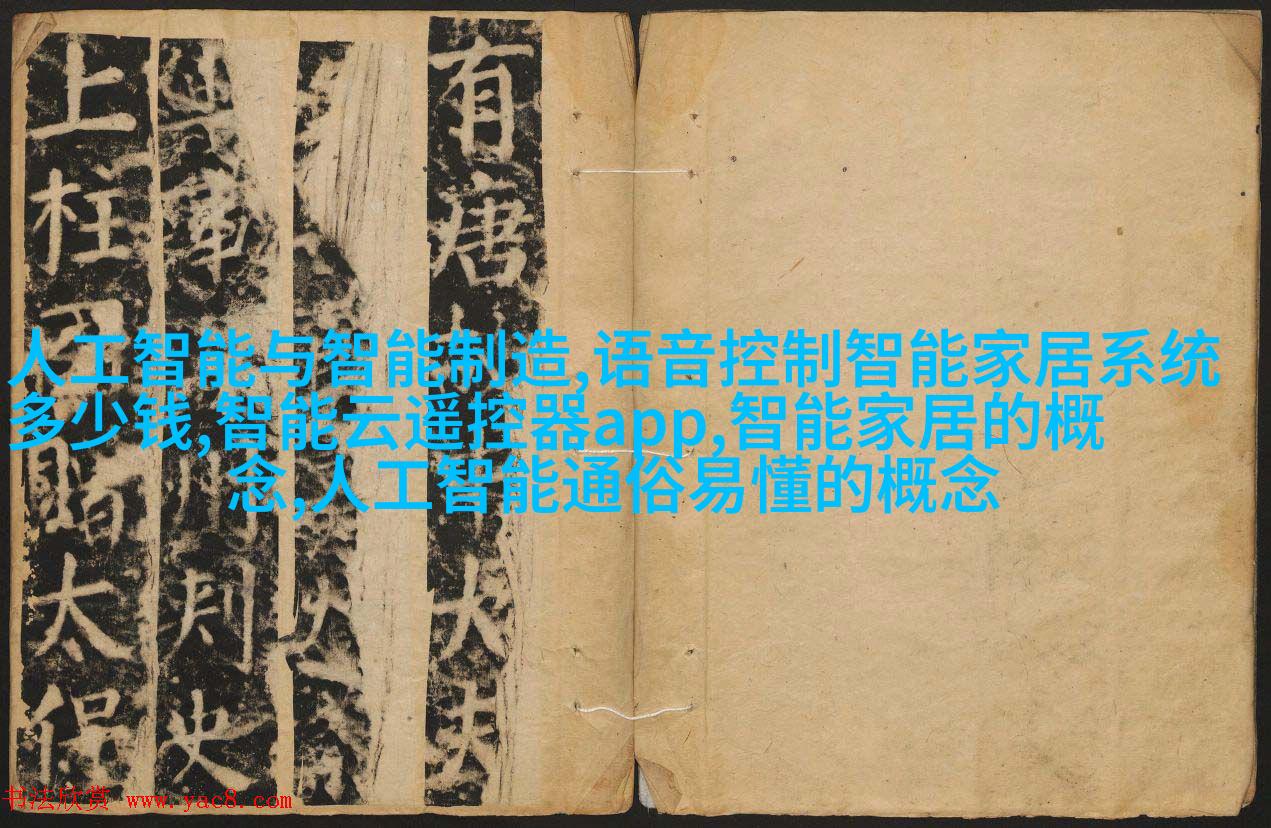 有唐
大夫
刺史
上柱國
贈太保
人工智能与智能制造,语音控制智能家居系统
多少钱,智能云遥控器app,智能家居的概
念,人工智能通俗易懂的概念
书法欣赏 www.yac8.com